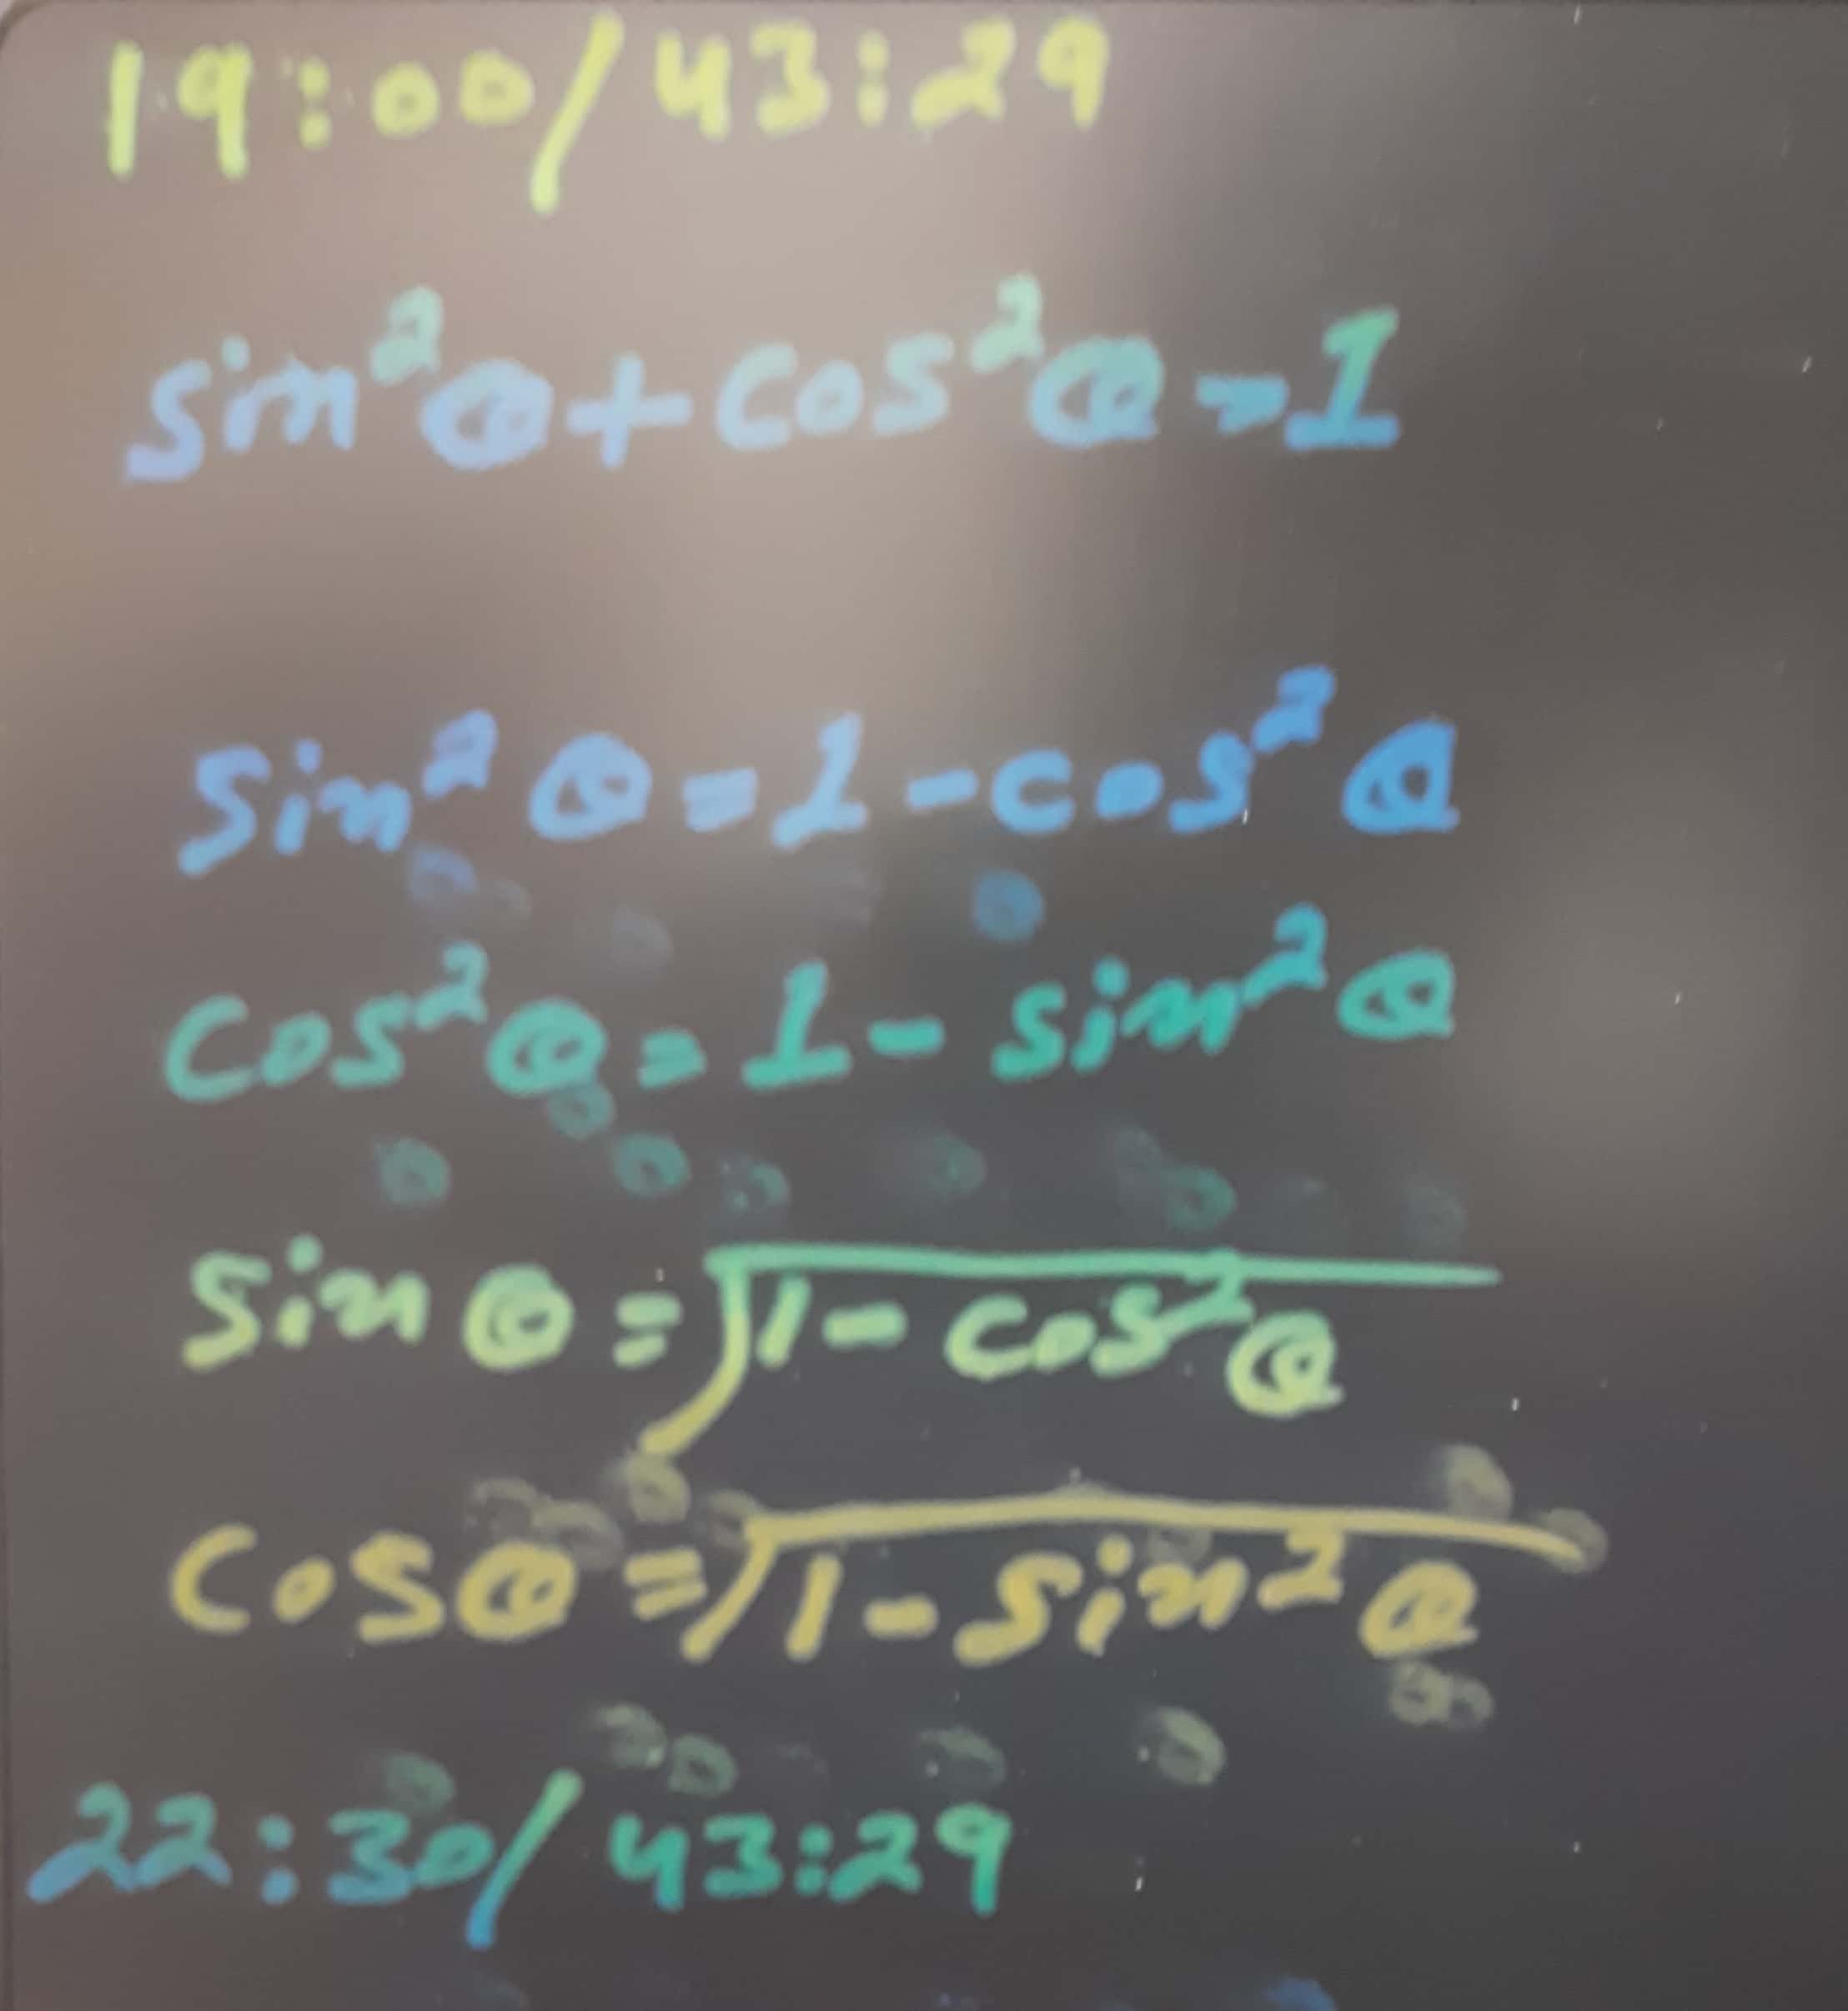 19:00/43:29
sin²θ+cos²θ=1
sin²θ=1-cos²θ
cos²θ=1-sin²θ
sinθ=√1-cos²θ
cosθ=√1-sin²θ
22:30/43:29